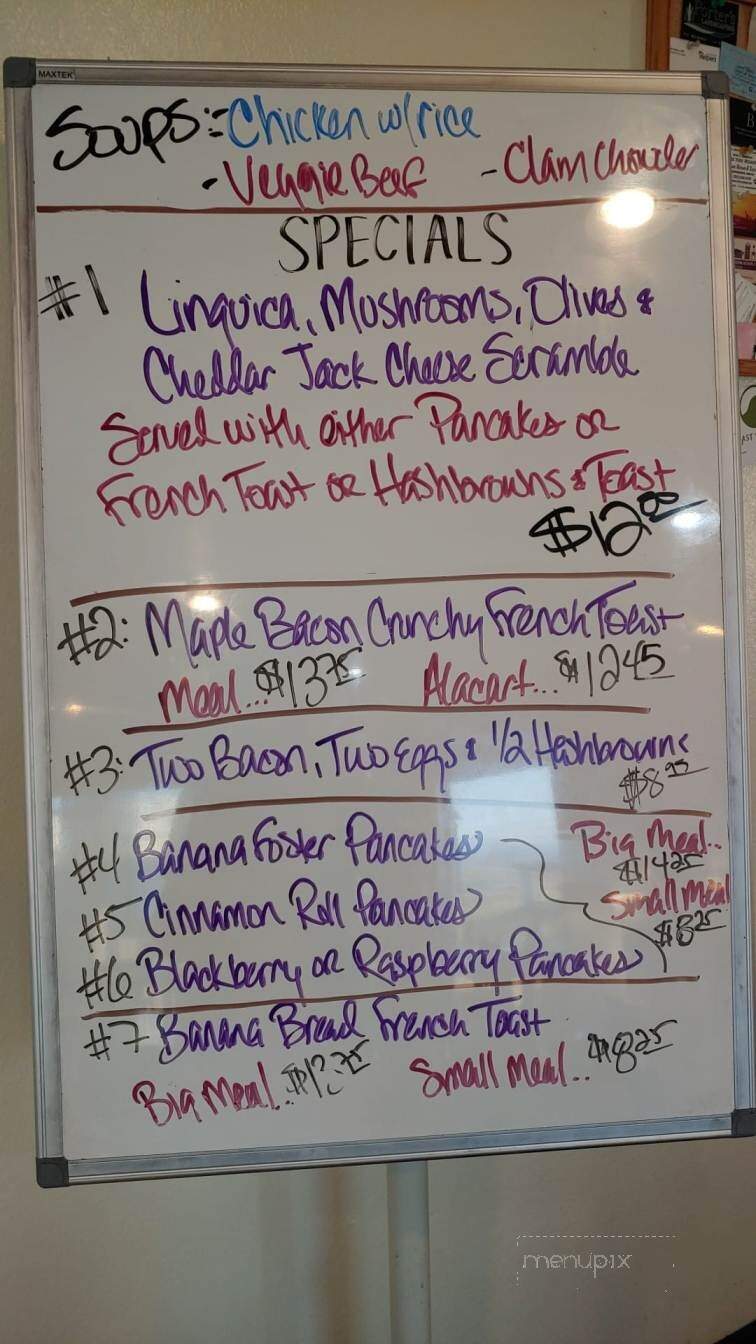 MAXTEK
Soups:- Chicken w/rice
- Veggie Beef - Clam Chowder
SPECIALS
#1 Linguica, Mushrooms, Olives &
Cheddar Jack Cheese Scramble
Served with either Pancakes or
French Toast or Hashbrowns & Toast
$12.00
#2: Maple Bacon Crunchy French Toast
Meal... $13.75 Alacart... $12.45
#3: Two Bacon, Two Eggs & 1/2 Hashbrowns
$8.95
#4 Banana Foster Pancakes
Big Meal..
$14.25
#5 Cinnamon Roll Pancakes
Small Meal
$8.25
#6 Blackberry or Raspberry Pancakes
#7 Banana Bread French Toast
Big Meal.. Small Meal.. $8.25
menupix